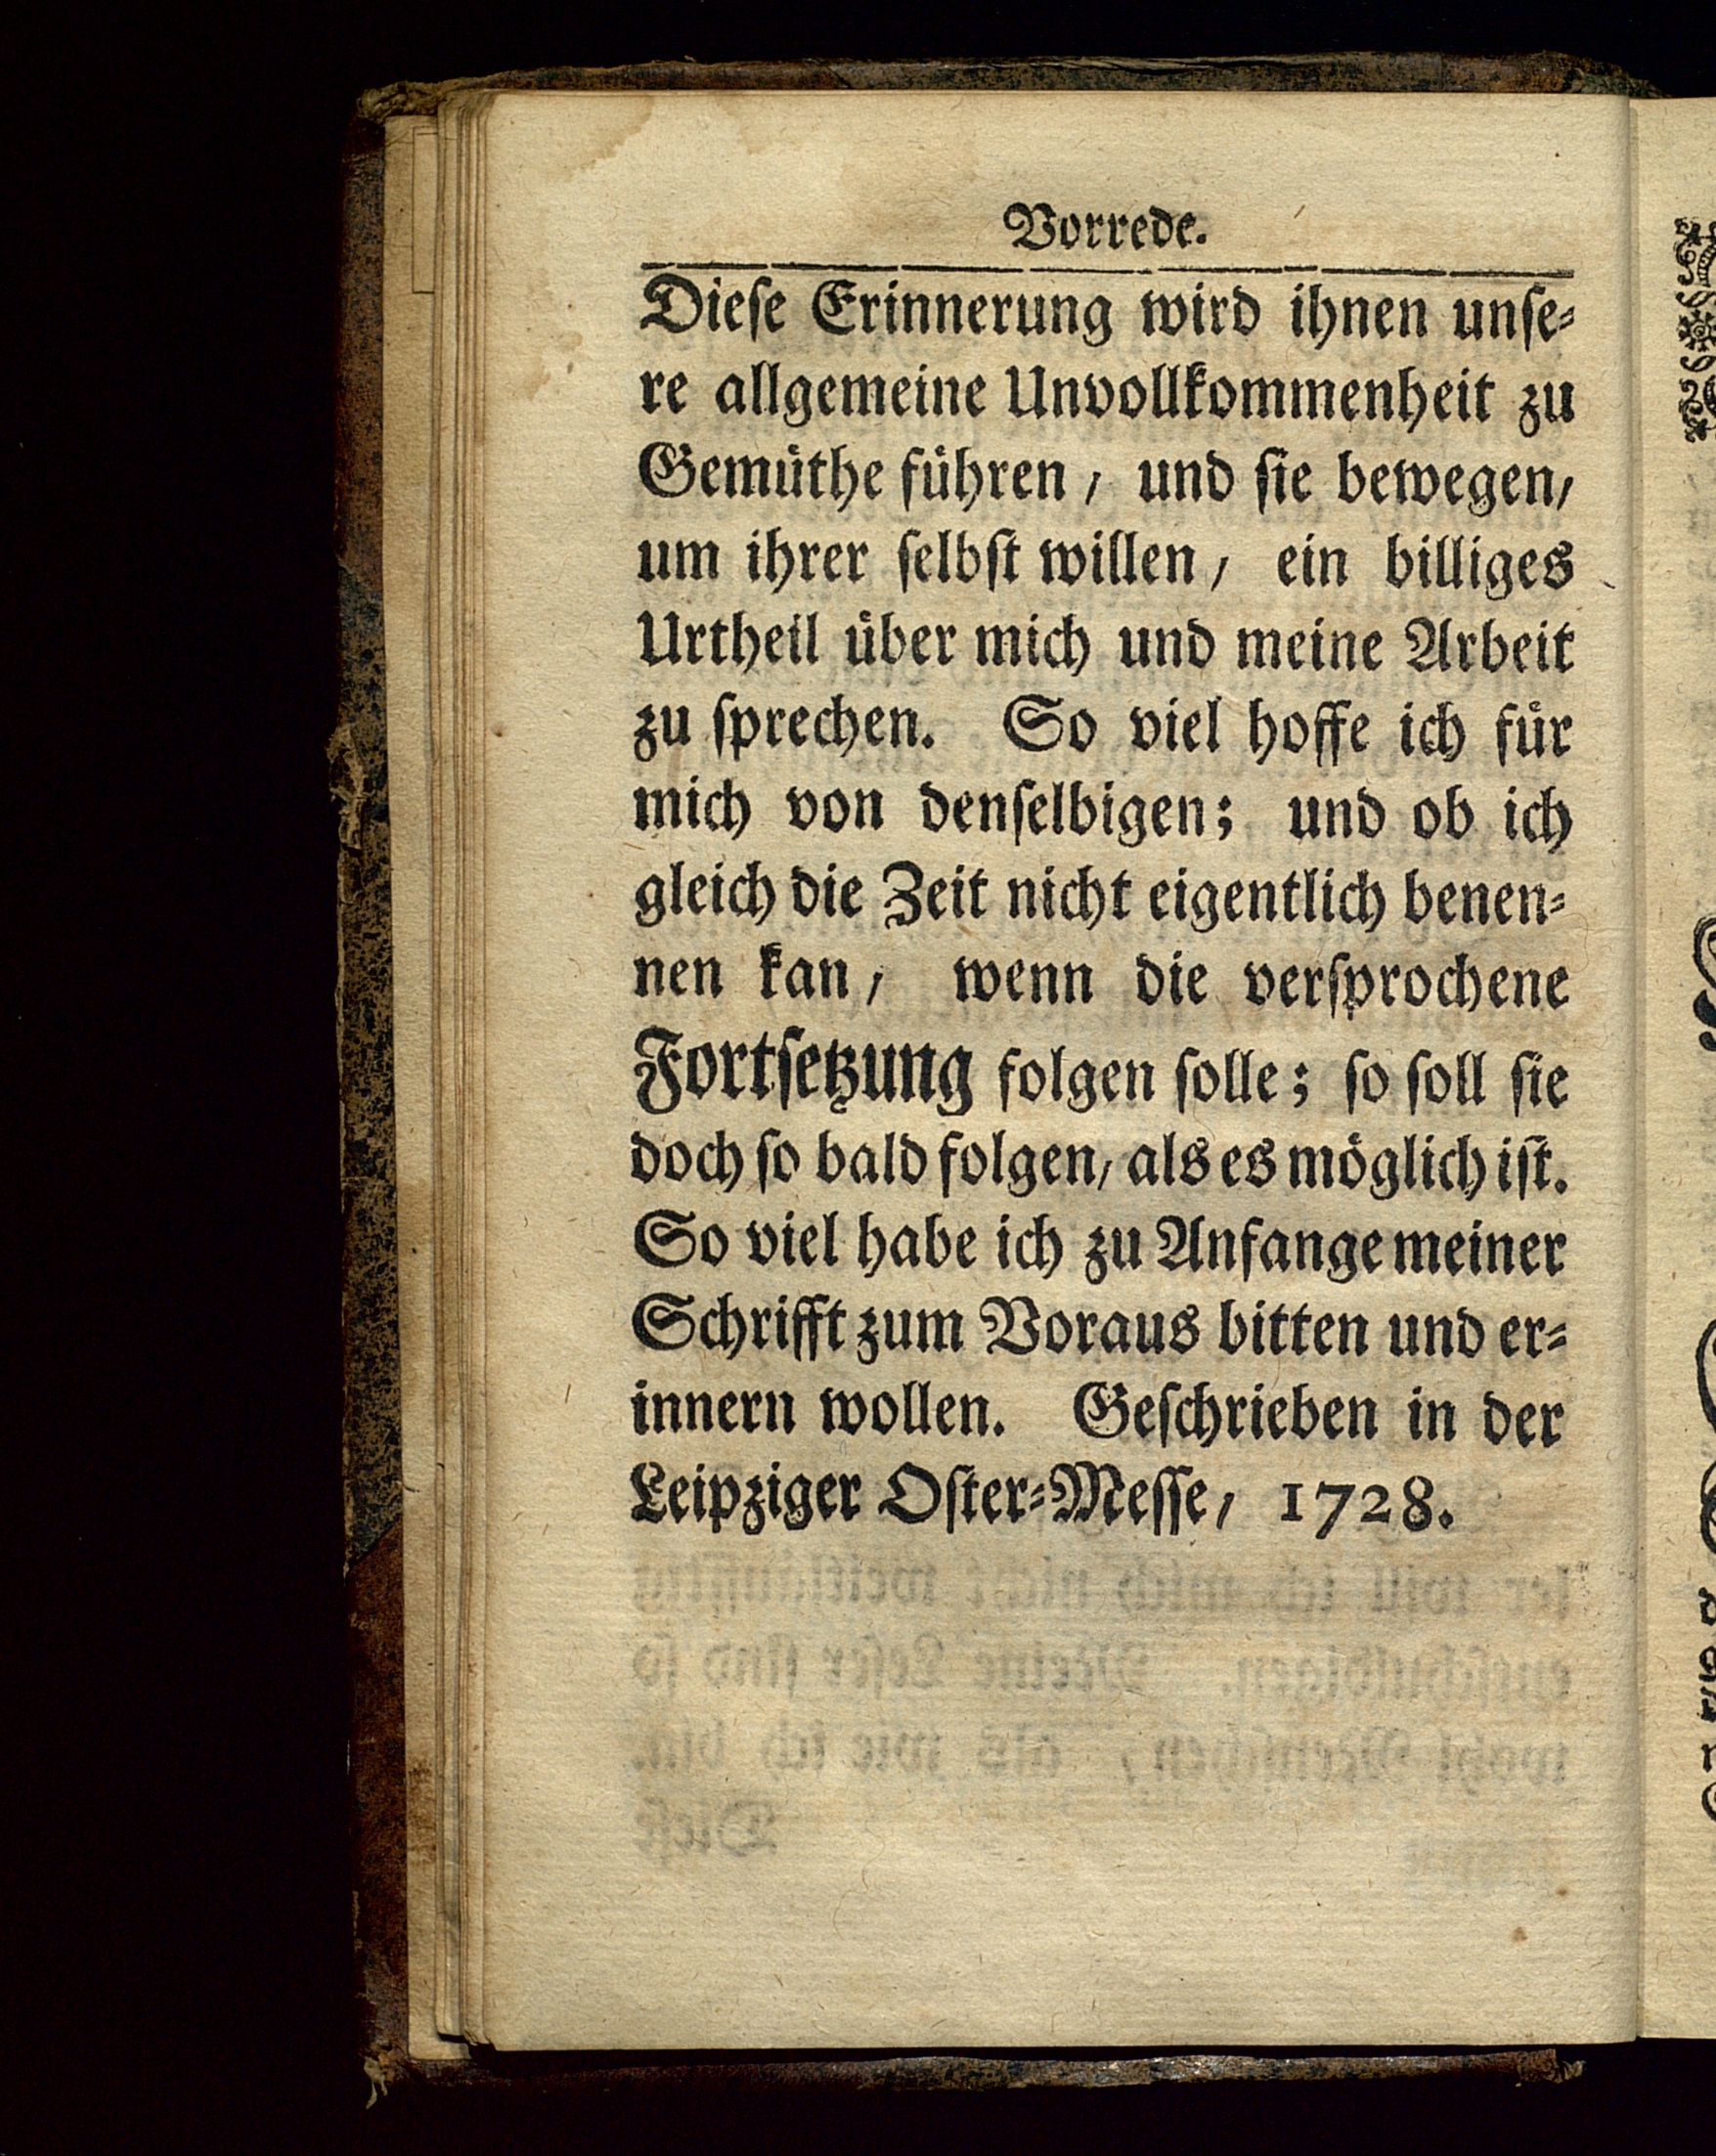 Vorrede.
Dieſe Erinnerung wird ihnen unſe⸗
re allgemeine Unvollkommenheit zu
Gemuͤthe fuͤhren / und ſie bewegen/
um ihrer ſelbſt willen / ein billiges
Urtheil uͤber mich und meine Arbeit
zu ſprechen. So viel hoffe ich fuͤr
mich von denſelbigen; und ob ich
gleich die Zeit nicht eigentlich benen⸗
nen kan / wenn die verſprochene
Fortſetzung folgen ſolle; ſo ſoll ſie
doch ſo bald folgen/ als es moͤglich iſt.
So viel habe ich zu Anfange meiner
Schrifft zum Voraus bitten und er⸗
innern wollen. Geſchrieben in der
Leipziger Oſter⸗Meſſe / 1728.